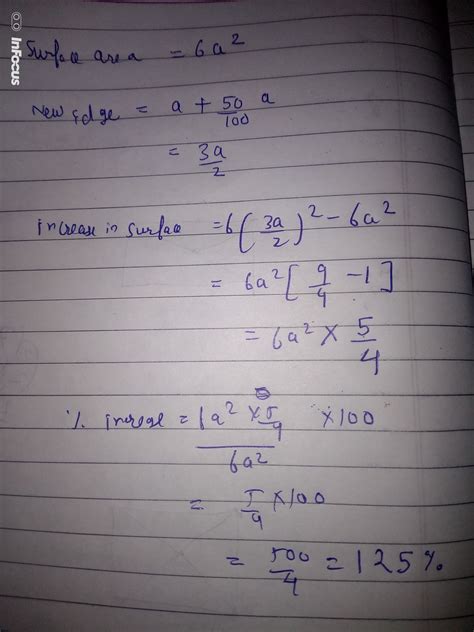 InFocus
Surface area = 6a²
New Edge = a + 50/100 a
= 3a/2
increase in surface = 6(3a/2)² - 6a²
= 6a² [9/4 - 1]
= 6a² × 5/4
% increase = 6a² × 5/4 / 6a² × 100
= 5/4 × 100
= 500/4 = 125%